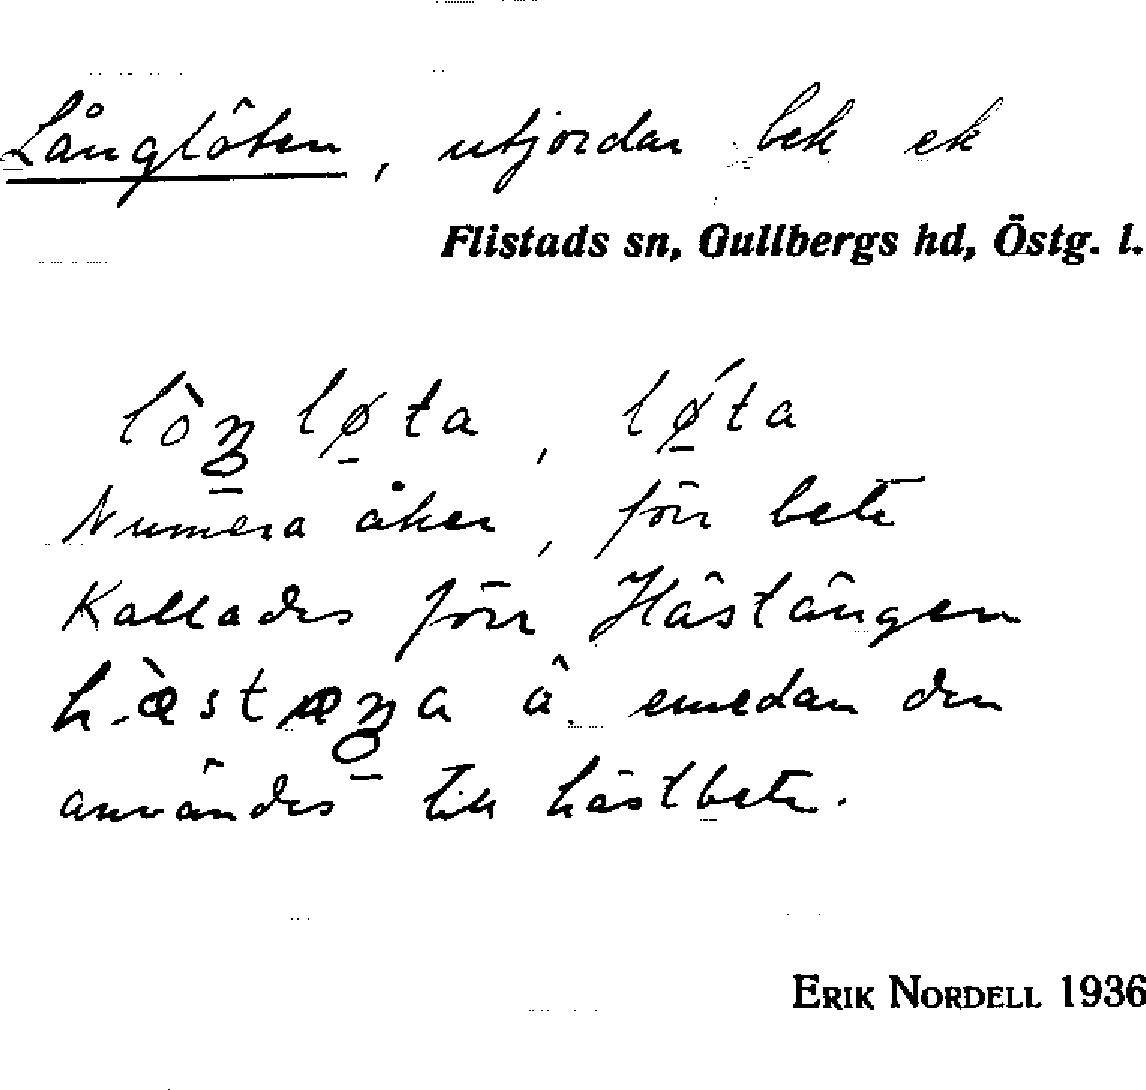 Långlöten, utjordar bek ek
Flistads sn, Gullbergs hd, Östg. l.
lòŋ lø̱ta, lǿ̱ta
Numera åker, förr bete
Kallades förr Hästängen
hæ̀stæŋa â, emedan den
användes till hästbete.
ERIK NORDELL 1936